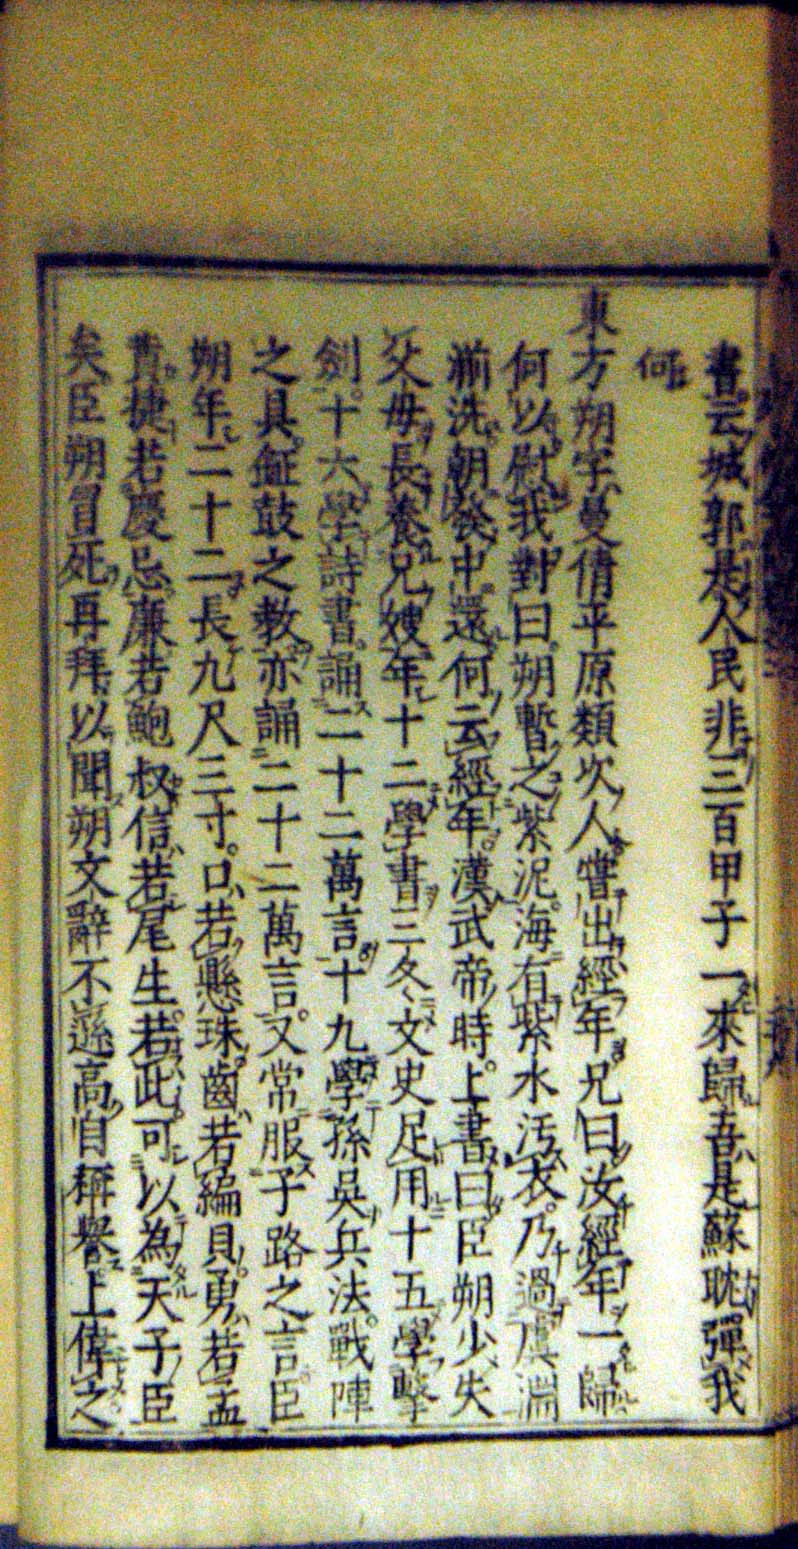 書云城郭是人民非三百甲子一來歸吾是蘇耽彈我
何
東方朔字曼倩平原類次人嘗出經年兄曰汝經年一歸
何以慰我對曰朔暫之紫泥海有紫水汚衣乃過虞淵
湔洗朝發中還何云經年漢武帝時上書曰臣朔少失
父母長養兄嫂年十二學書三冬文史足用十五學擊
劍十六學詩書誦二十二萬言十九學孫吳兵法戰陣
之具鉦鼓之教亦誦二十二萬言又常服子路之言臣
朔年二十二長九尺三寸口若懸珠齒若編貝勇若孟
賁捷若慶忌廉若鮑叔信若尾生若此可以為天子臣
矣臣朔冒死再拜以聞朔文辭不遜高自稱譽上偉之